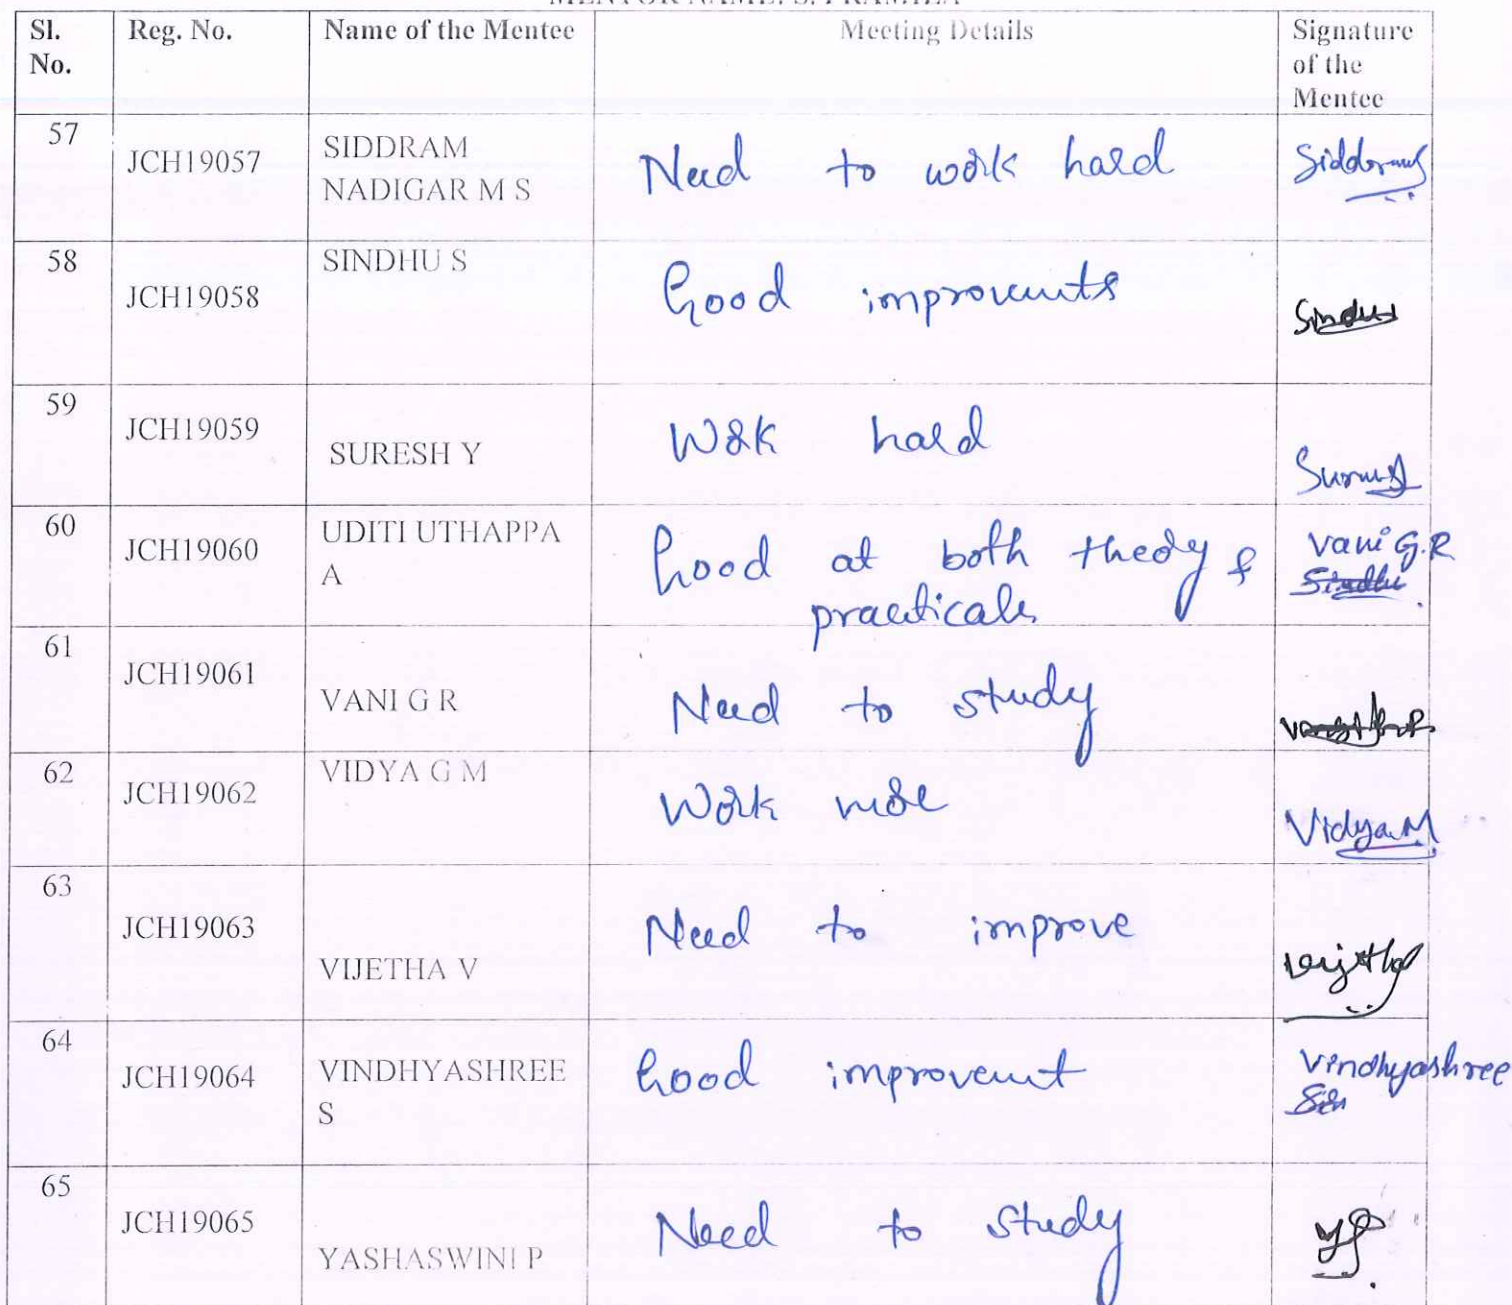 Sl. No. Reg. No. Name of the Mentee Meeting Details Signature of the Mentee
57 JCH19057 SIDDRAM NADIGAR M S Need to work hard
58 JCH19058 SINDHU S Good improvents
59 JCH19059 SURESH Y Work hard
60 JCH19060 UDITI UTHAPPA A Good at both theory & practicals Vani G.R
61 JCH19061 VANI G R Need to study
62 JCH19062 VIDYA G M Work more Vidya.M
63 JCH19063 VIJETHA V Need to improve
64 JCH19064 VINDHYASHREE S Good improvent Vindhyashree
65 JCH19065 YASHASWINI P Need to study